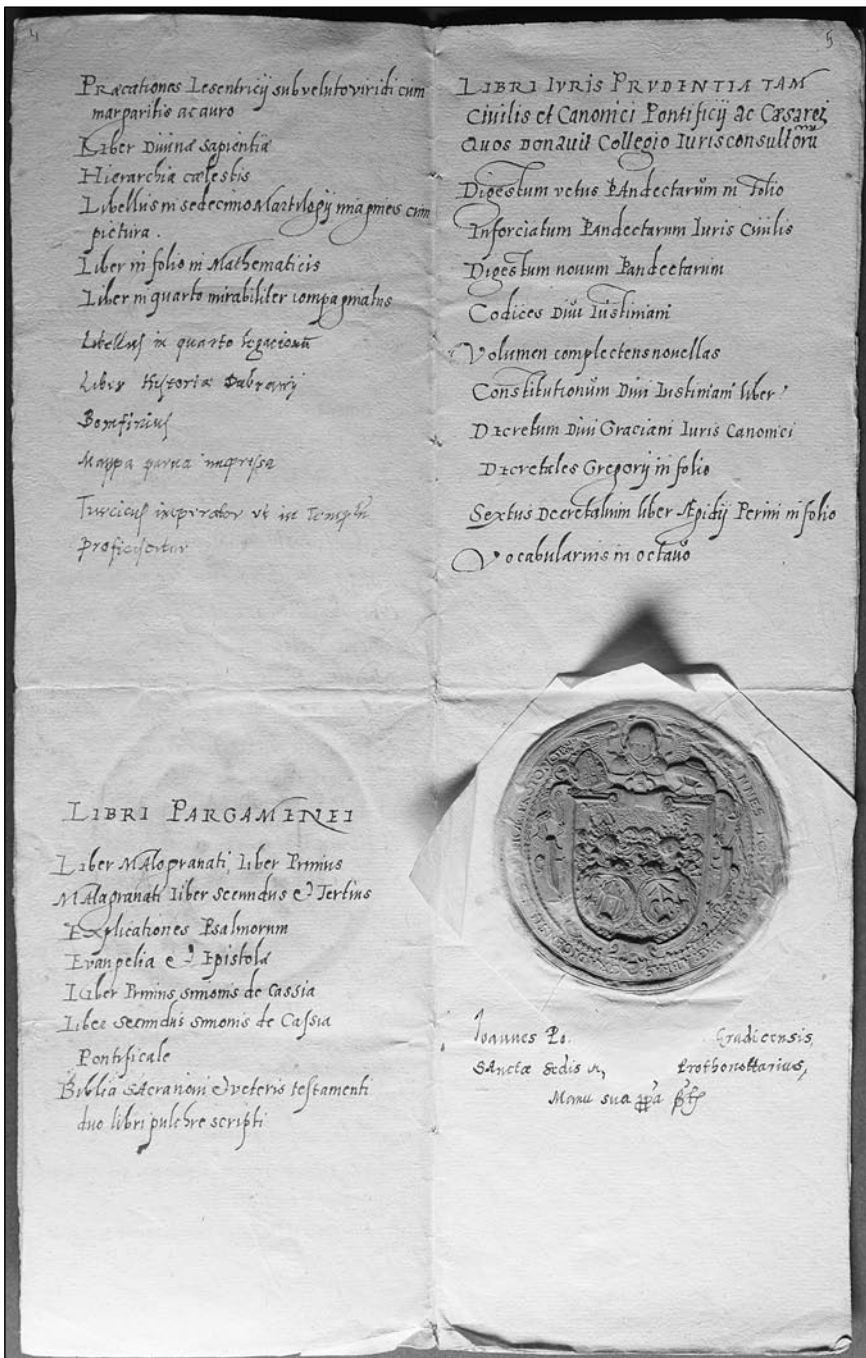 4
Præcationes Lesentricij sub veluto viridi cum
margaritis ac auro
Liber Divinæ Sapientiæ
Hierarchia cælestis
Libellus in sedecimo Martilogij
pictura.
Liber in folio in Mathematicis
Liber in quarto mirabiliter compaginatus
Libellus in quarto legacionū
Liber Historiæ Dubravij
Bomfinius
Mappa parva impressa
Turcicus imperator ut in Templū
Proficiscitur
LIBRI PARGAMENEI
Liber Malogranati, Liber Primus
Malagranati Liber Secundus & Tertius
Explicationes Psalmorum
Evangelia & Epistolæ
Liber Primus simonis de Cassia
Liber Secundus simonis de Cassia
Pontificale
Biblia sacra novi & veteris testamenti
duo libri pulchre scripti
5
LIBRI IVRIS PRVDENTIÆ TAM
Civilis et Canonici Pontificij ac Cæsarei
Quos Donavit Collegio Iurisconsultorū
Digestum vetus Pandectarum in Folio
Inforciatum Pandectarum Iuris Civilis
Digestum novum Pandectarum
Codices Divi Iustiniani
Volumen complectens novellas
Constitutionum Divi Iustiniani liber
Decretum Divi Graciani Iuris Canonici
Decretales Gregorij in folio
Sextus Decretalium liber Ægidij Perini in folio
Vocabularius in octavo
Ioannes Gradicensis,
Sanctæ Sedis Prothonottarius,
Manu sua